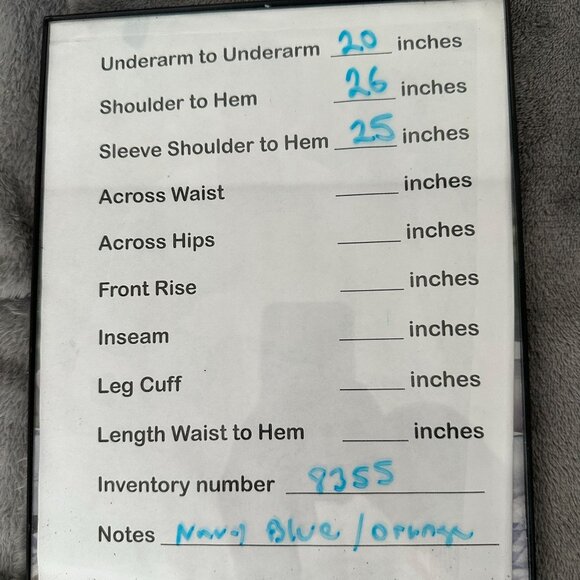 Underarm to Underarm 20 inches
Shoulder to Hem 26 inches
Sleeve Shoulder to Hem 25 inches
Across Waist ______ inches
Across Hips ______ inches
Front Rise ______ inches
Inseam ______ inches
Leg Cuff ______ inches
Length Waist to Hem ______ inches
Inventory number 8355
Notes Navy Blue / Orange